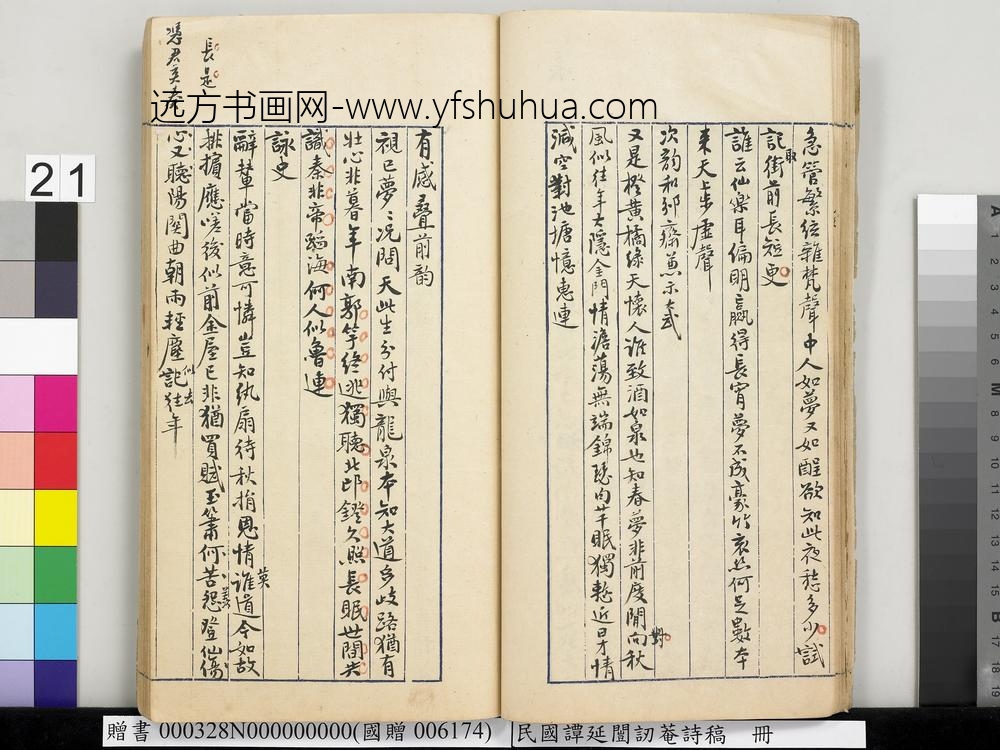 急管繁弦雜梵聲中人如夢又如醒欲知此夜愁多少試
記街前長短更
取
誰云仙樂耳偏明贏得長宵夢不成豪竹哀絲何足數本
來天步虛聲
次韵和邠齋兼示大武
又是橙黃橘綠天懷人誰致酒如泉也知春夢非前度閒向秋
對
風似往年大隱金門情澹蕩無端錦瑟內芊眠獨慙近日才情
減空對池塘憶惠連
有感疊前韵
視已夢夢況問天此生分付與龍泉本知大道多歧路猶有
壯心非暮年南郭竽終逃獨聽北邙鐙久照長眠世間共
識秦非帝蹈海何人似魯連
詠史
辭輦當時意可憐豈知紈扇待秋捐恩情誰道今如故
莫
排擯應嗟後似前金屋已非猶買賦玉簫何苦怨登仙傷
羨
心又聽陽關曲朝雨輕塵記往年
似去
長是
馮君
远方书画网-www.yfshuhua.com
21
贈書 000328N000000000(國贈 006174)
民國譚延闓訒菴詩稿 冊